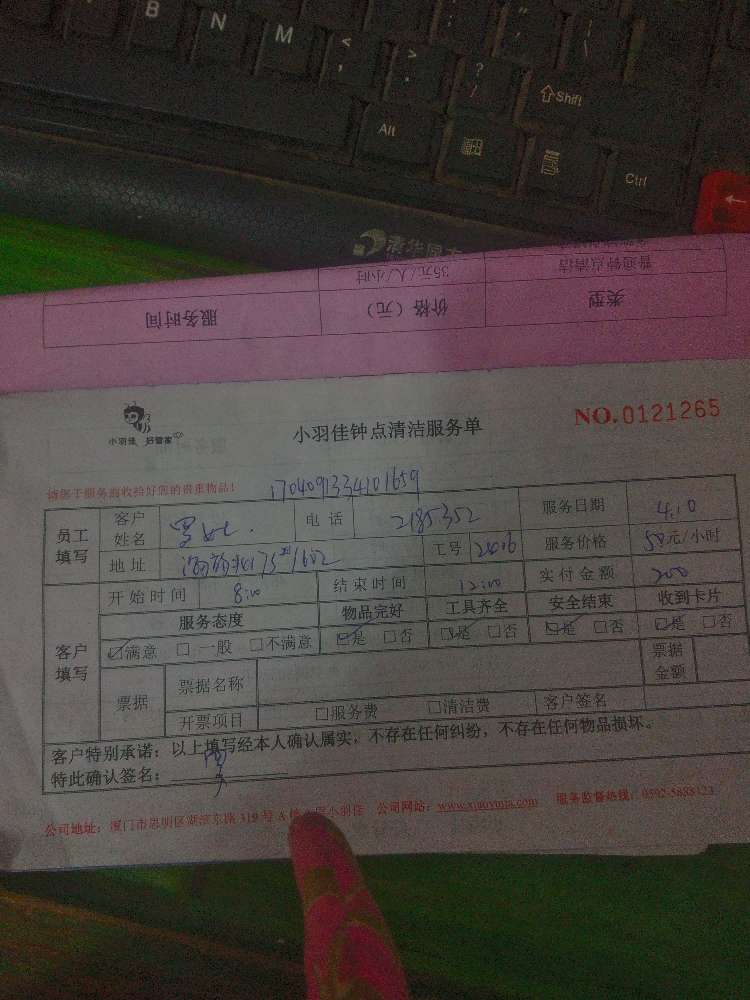 B N M < , > . ? / Shift
Alt Ctrl
普通钟点清洁 35元/人/小时
类型 价格（元） 服务时间
小羽佳 好管家
小羽佳钟点清洁服务单
NO.0121265
请您于服务前收拾好您的贵重物品！
1704091334101659
员工填写 客户姓名 电话 2185352 服务日期 4.10
地址 工号 服务价格 50元/小时
客户填写 开始时间 8:00 结束时间 12:00 实付金额 200
服务态度 物品完好 工具齐全 安全结束 收到卡片
☑满意 □一般 □不满意 ☑是 □否 ☑是 □否 ☑是 □否 ☑是 □否
票据 票据名称 票据金额
开票项目 □服务费 □清洁费 客户签名
客户特别承诺：以上填写经本人确认属实，不存在任何纠纷，不存在任何物品损坏。
特此确认签名：
公司地址：厦门市思明区湖滨东路319号A 小羽佳 公司网站： 服务监督热线：